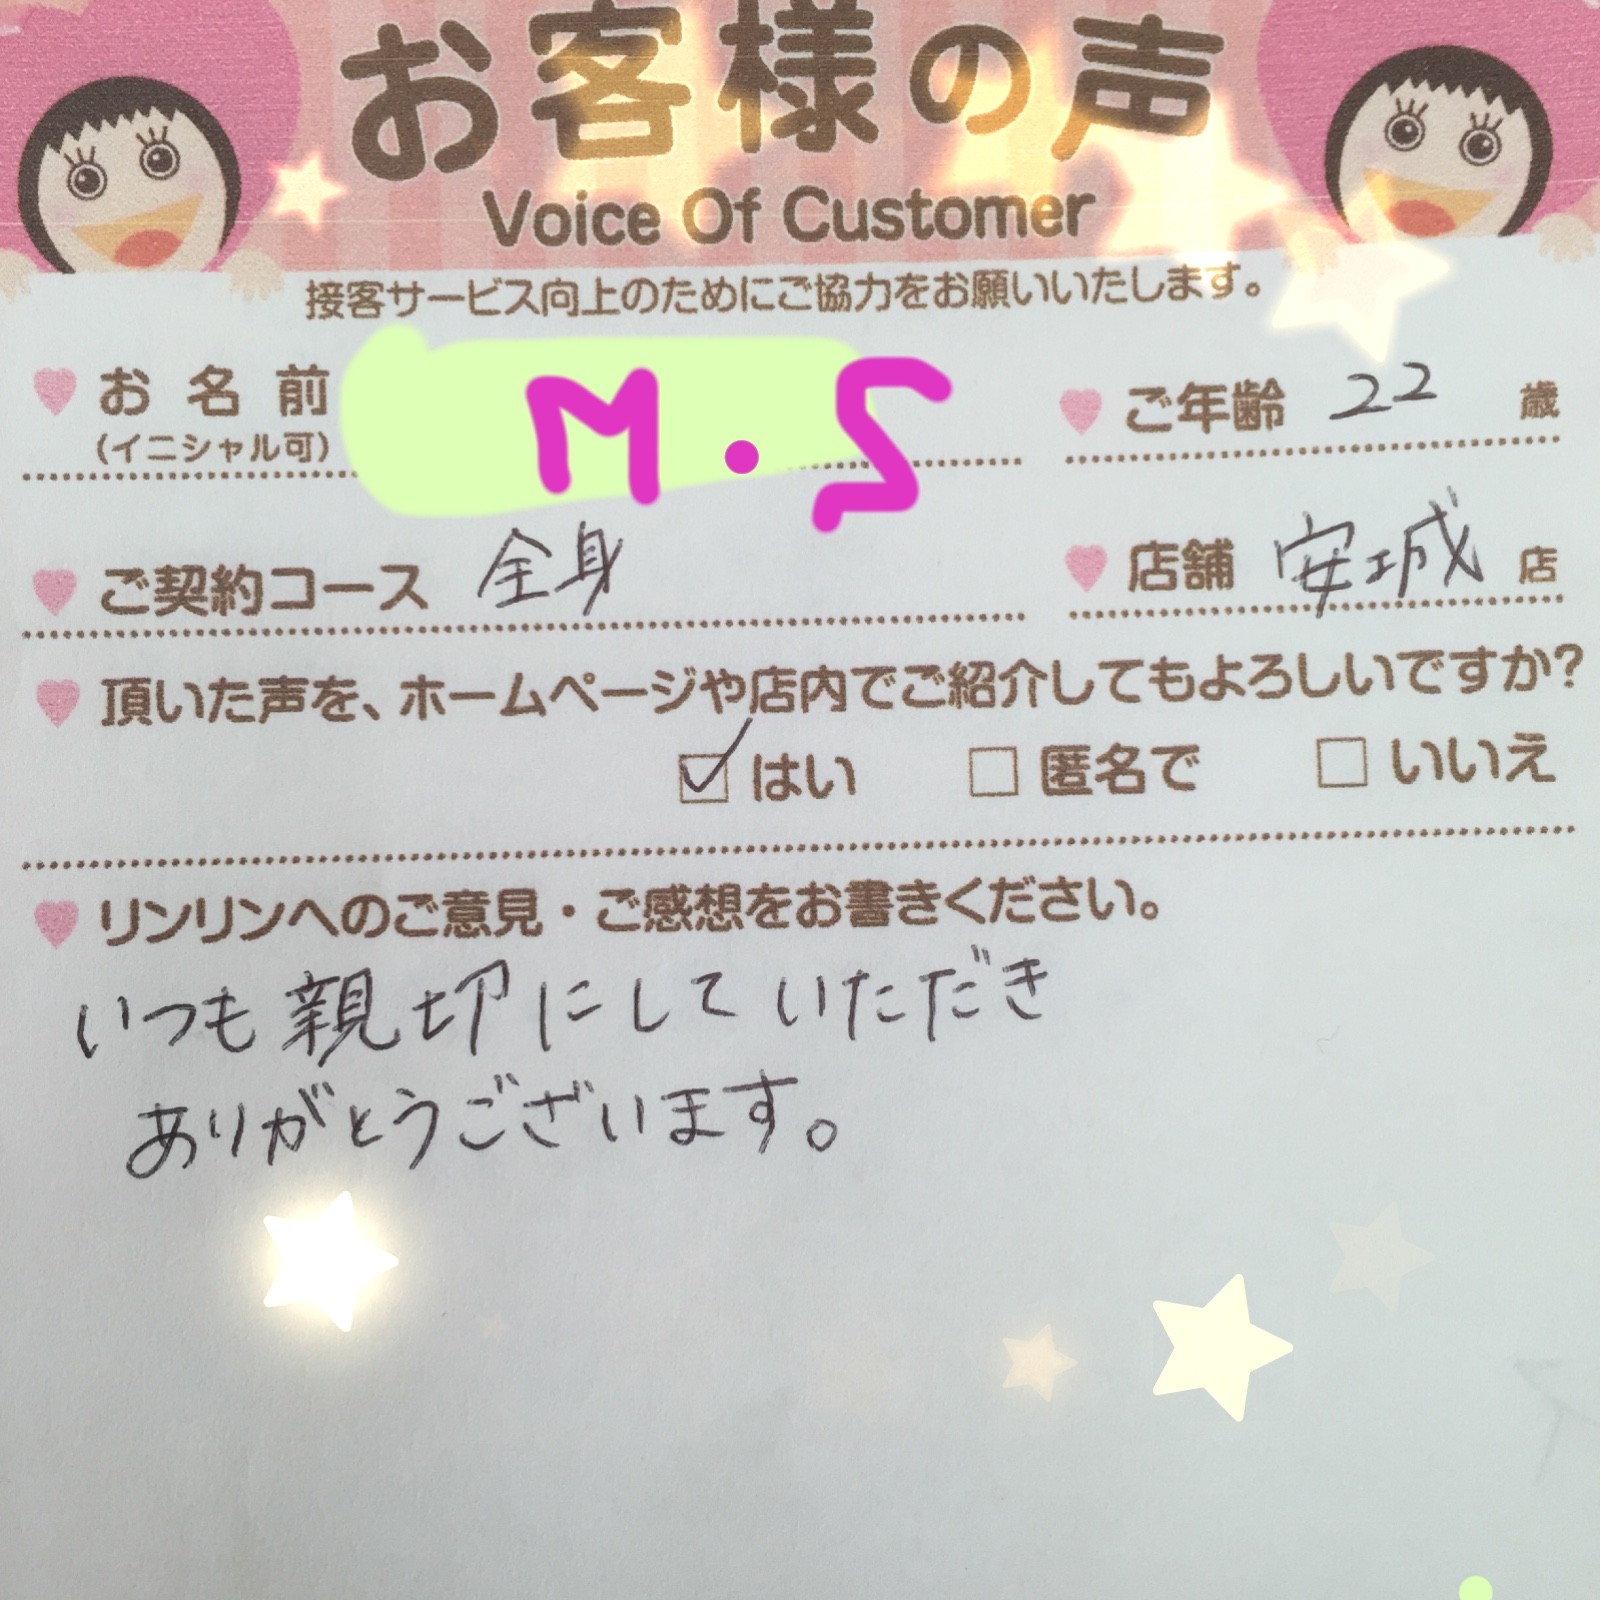 お客様の声
Voice Of Customer
接客サービス向上のためにご協力をお願いいたします。
お名前 M.S ご年齢 22 歳
(イニシャル可)
ご契約コース 全身 店舗 安城 店
頂いた声を、ホームページや店内でご紹介してもよろしいですか?
はい 匿名で いいえ
リンリンへのご意見・ご感想をお書きください。
いつも親切にしていただき
ありがとうございます。